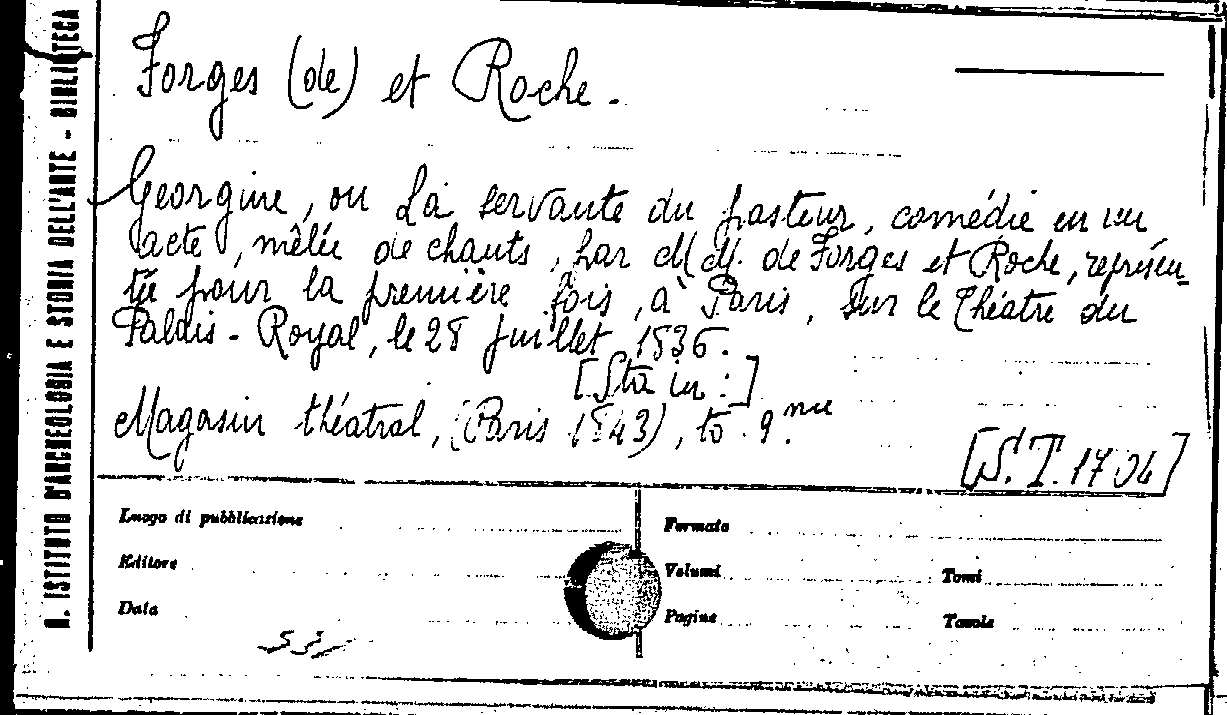 R. ISTITUTO D'ARCHEOLOGIA E STORIA DELL'ARTE - BIBLIOTECA
Forges (de) et Roche.
Georgine, ou La servante du pasteur, comédie en un
acte, mêlée de chants, par M M. de Forges et Roche, représen-
tée pour la première fois, à Paris, sur le Théatre du
Palais-Royal, le 28 juillet 1836.
[Sta in:]
Magasin théatral, (Paris 1843), to. 9.me
[S.T. 1704]
Luogo di pubblicazione
Formato
Editore
Volumi
Tomi
Data
Pagine
Tavole